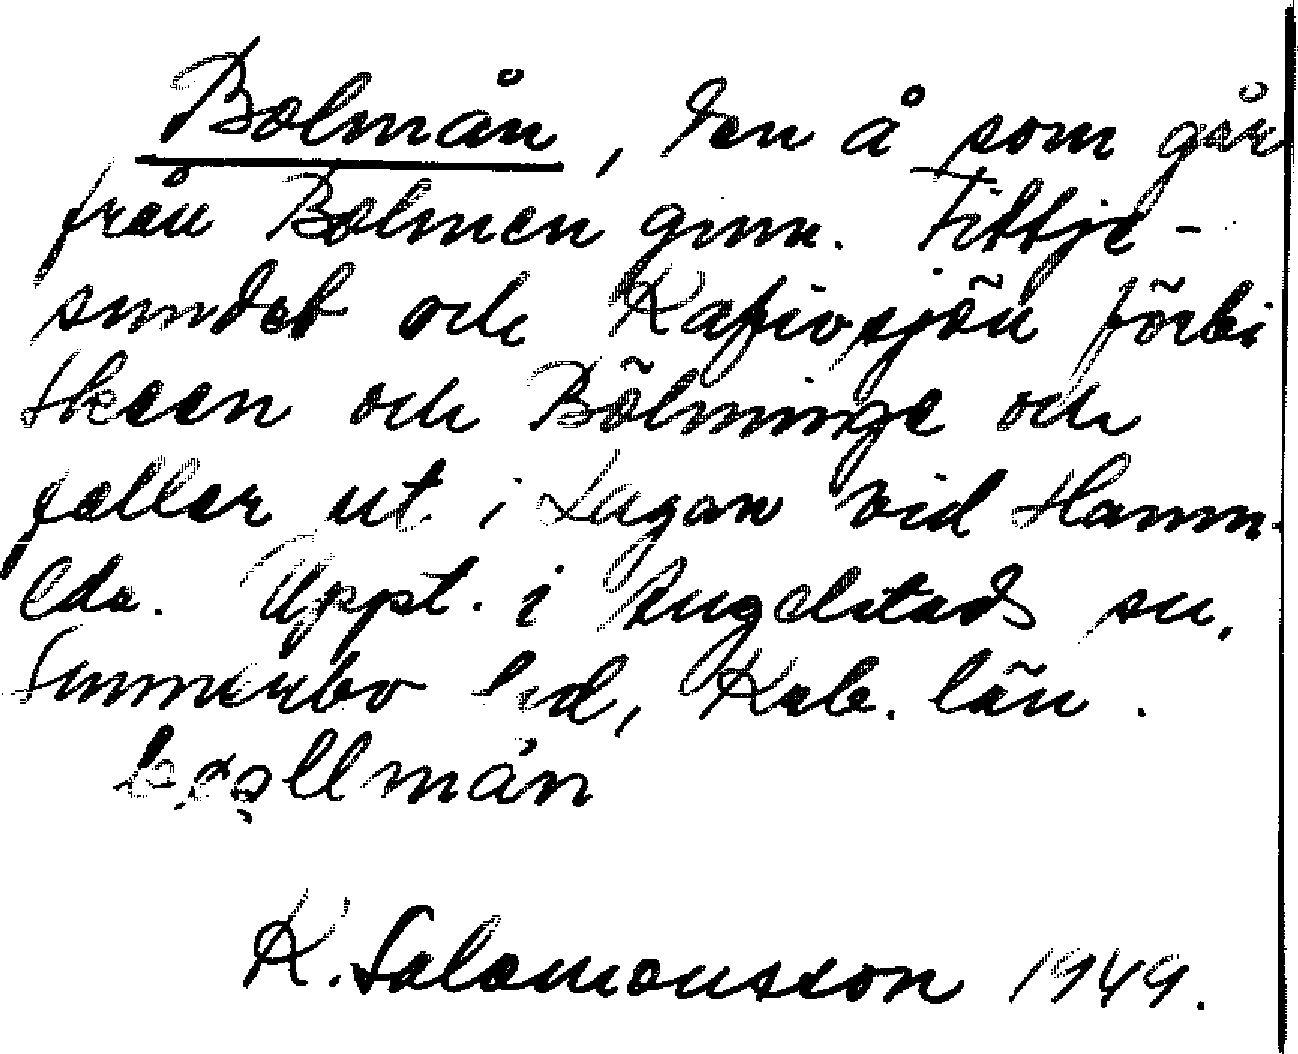 Bolmån, den å som går
från Bolmen gnm. Fittje-
sundet och Kafjosjön förbi
Skeen och Bölminge och
faller ut i Lagan vid Hamn-
eda. Uppt. i Angelstads sn.
Sunnerbo hd, Kab. län.
bollmån
K. Salomonsson 1949.